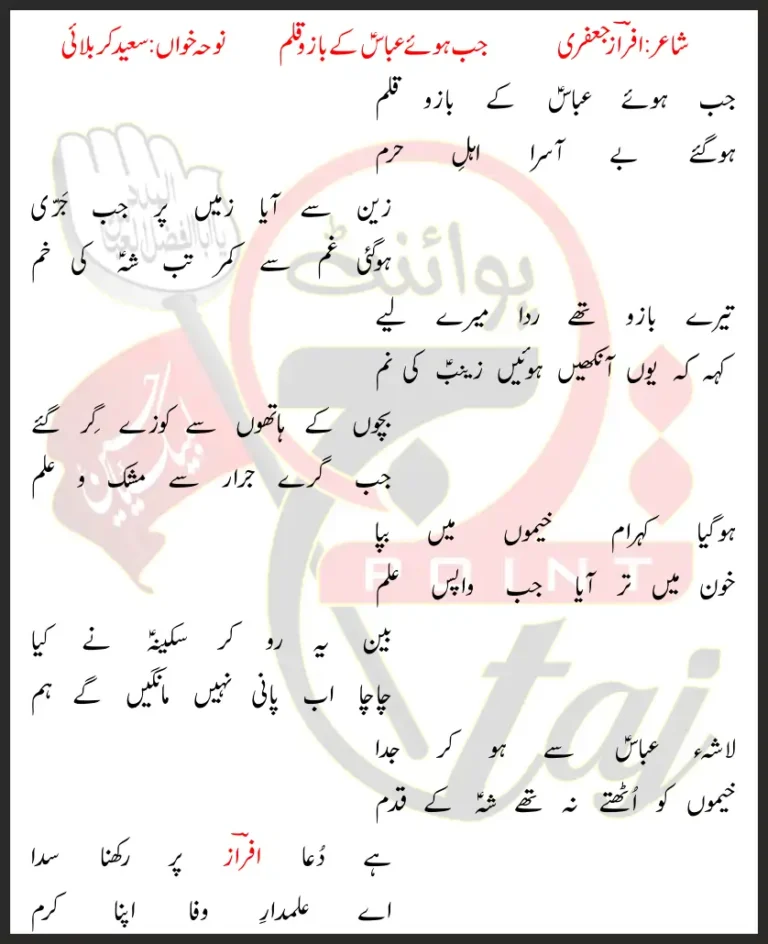 شاعر: افرازؔ جعفری جب ہوئے عباسؑ کے بازو قلم نوحہ خواں: سعید کربلائی
جب ہوئے عباسؑ کے بازو قلم
ہوگئے بے آسرا اہلِ حرم
زین سے آیا زمیں پر جب جَرّی
ہوگئی غم سے کمر تب شہؑ کی خم
تیرے بازو تھے ردا میرے لیے
کہہ کہ یوں آنکھیں ہوئیں زینبؑ کی نم
بچوں کے ہاتھوں سے کوزے گِر گئے
جب گرے جرار سے مشک و علم
ہوگیا کہرام خیموں میں بپا
خون میں تر آیا جب واپس علم
بین یہ رو کر سکینہؑ نے کیا
چاچا اب پانی نہیں مانگیں گے ہم
لاشہء عباسؑ سے ہو کر جدا
خیموں کو اُٹھتے نہ تھے شہؑ کے قدم
ہے دُعا افرازؔ پر رکھنا سدا
اے علمدارِ وفا اپنا کرم
پوائنٹ
POINT
taj
لبیک یا حسین